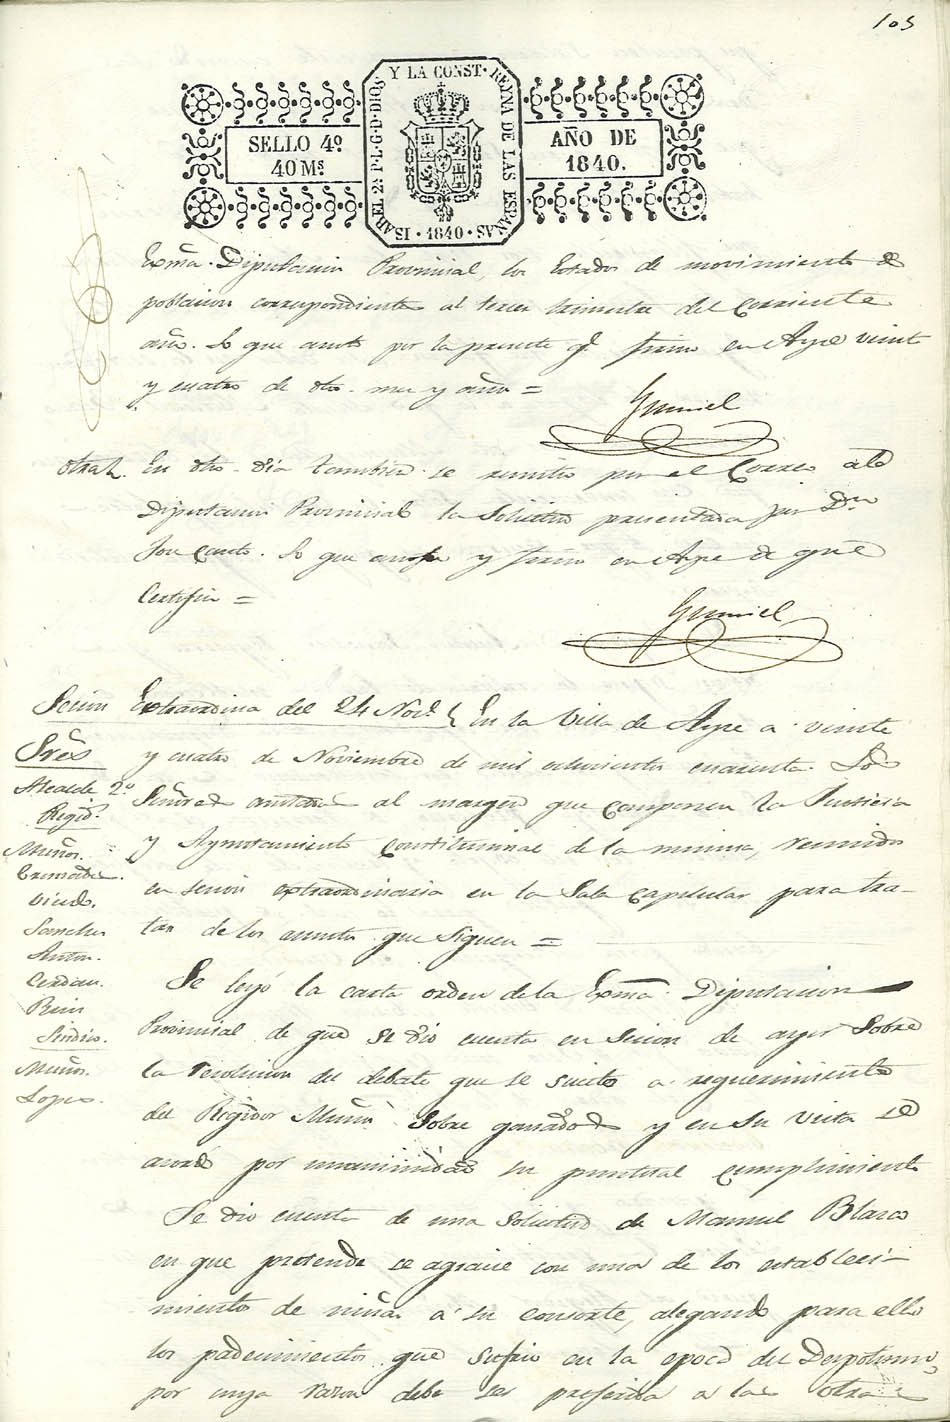 105
ISABEL 2ª P.L.G.D.DIOS Y LA CONST. REYNA DE LAS ESPAÑAS
SELLO 4º
40 Ms.
AÑO DE
1840.
· 1840 ·
Exmã. Diputacion Provincial, los Estados de movimiento de
poblacion correspondiente al tercer trimestre del corriente
año. Lo que anoto por la presente q.e firmo en Aspe veinte
y cuatro de dho. mes y año =
Gumiel
Otra. En dho. dia tambien se remitio por el Correo a la
Diputacion Provincial la Solicitud presentada por Dn.
José Canto. Lo que anoto y firmo en Aspe de que
Certifico =
Gumiel
Secion Extraordina del 24 Nov.e En la Villa de Aspe a veinte
Sres
Alcalde 2º
Regid.s
Muños.
Cremades.
Sanchez
Anton.
Cerdan.
Sindico.
Muños.
Lopes.
y cuatro de Noviembre de mil ochocientos cuarenta. Los
Señores anotados al margen que componen la Justicia
y Ayuntamiento Constitucional de la misma, reunidos
en secion extraordinaria en la Sala Capitular para tra-
tar de los asuntos que siguen =
Se leyó la carta orden de la Exmã. Diputacion
Provincial de que se dio cuenta en Secion de ayer sobre
la resolucion del debate que se suscito a requerimiento
del Regidor Muños sobre ganados y en su vista se
acordó por unanimidad su puntual cumplimiento
Se dio cuenta de una solicitud de Manuel Blasco
en que pretende se agracie con una de los estableci-
mientos de niñas a su consorte, alegando para ello
los padecimientos que sufrio en la epoca del Despotismo,
por cuya razon debe ser preferida a las otras